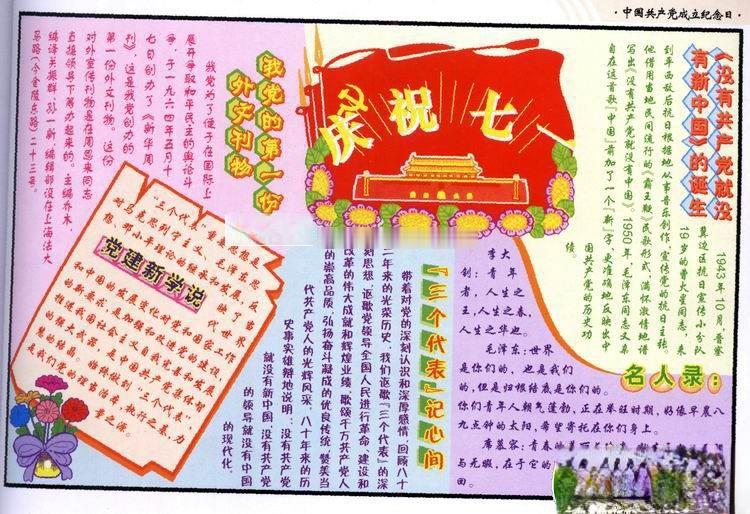 ·中国共产党成立纪念日·
庆祝七一
《没有共产党就没
有新中国》的诞生
1943年10月,晋察
冀边区抗日宣传小分队
19岁的曹火星同志,来
到平西敌后抗日根据地从事音乐创作,宣传党的抗日主张。
他借用当地民间流行的《霸王鞭》民歌形式,满怀激情地谱
写出《没有共产党就没有中国》。1950年,毛泽东同志又亲
自在这首歌“中国”前加了一个“新”字,更准确地反映出中
国共产党的历史功
绩。
我党的第一份
外文刊物
我党为了便于在国际上
展开争取和平民主的舆论斗
争,于一九六四年五月十
七旬创办了《新华周
刊》,这是我党创办的
第一份外文刊物。这份
对外宣传刊物是在周恩来同志
直接领导下筹办起来的。主编乔木,
编译关振群、孙一新,编辑部设在上海法大
马路(今金陵东路)二十三号。
党建新学说
“三个代表”重要思想是
对马克思列宁主义、毛泽东思
想、邓小平理论的继承和发展,反
映了当代世界
和中国的发展变化对党和国家工作
的新要求,是加强和改进党的建设,
推进我国社会主义自我完善和发展
的强大
是中国共产党集体智
始终做到“三个代表”,
是我们党的
执行之基、力
量之源。
『三个代表』记心间
带着对党的深刻认识和深厚感情,回顾八十
二年来的光荣历史,我们讴歌“三个代表”的深
刻思想,讴歌党领导全国人民进行革命、建设和
改革的伟大成就和辉煌业绩,歌颂千万共产党人
的崇高品质,弘扬奋斗凝成的优良传统,赞美当
代共产党人的光辉风采,八十年来的历
史事实雄辩地说明:没有共产党
就没有新中国,没有共产党
的领导就没有中国
的现代化。
名人录:
李大
钊:青年
者,人生之
王,人生之春,
人生之华也。
毛泽东:世界
是你们的,也是我们
的,但是归根结底是你们的。
你们青年人朝气蓬勃,正在兴旺时期,好像早晨八
九点钟的太阳,希望寄托在你们身上。
席慕容:青春的美丽
与无瑕,在于它的